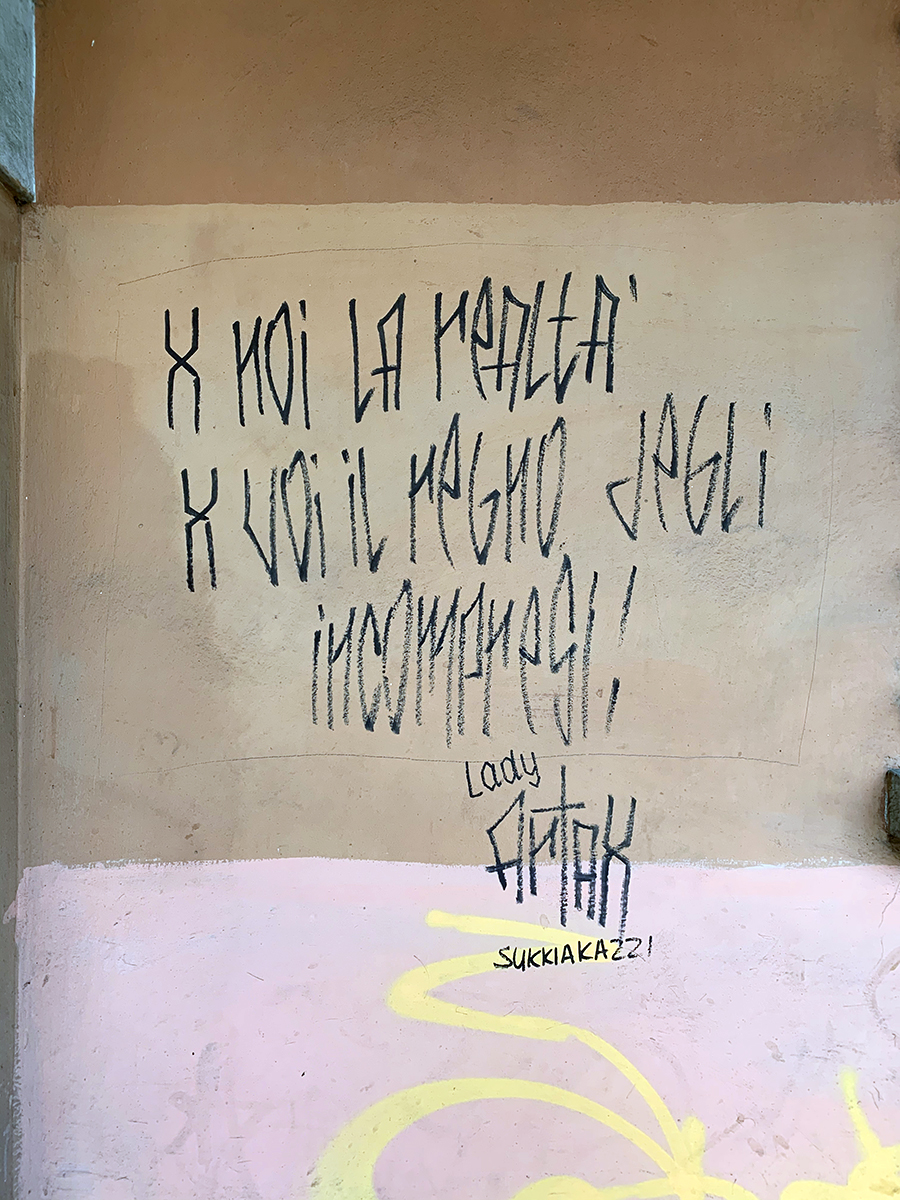 X noi LA reALtA'
X VOi iL regno degLi
incompresi!
Lady
Artax
SUKKIAKAZZI